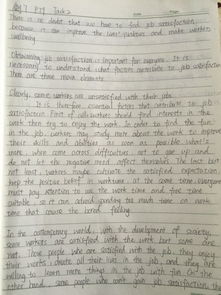 P27 T2 Task 2
There is no doubt that we have to find job satisfaction,
because it can improve the lives workers and make workers
wellbeing
Obtainning job satisfaction is important for everyone. It is
necessary to understand what factors contribute to job satisfaction
There are three main elements
Clearly, some workers are unsatisfied with their jobs.
It is therefore essential factors that contribute to job
satisfaction. First of all workers should find interests in the
work then try to enjoy the work. In order to find the fun
in the job, workers may study more about the work to improve
their skills and abilities as soon as possible. what is
more, when come across difficulties, not to give up and
do not let the negative mood affect themselves. The last but
not least, workers maybe cultivate the satisfied expectation
keep the positive belief in worktime. at the same time everyone
must pay attention to use the work time and free time
suitable, so it can advoid spending too much time on work
time that cause the bored feeling
In the contempory world, with the development of society,
some workers are satisfied with the work but some are
not. Those people who are satisfied with the job, they enjoy
their works, devote all their lives in the job, and they are
willing to learn more things in the job with fun. On the
other hand, some people who can't gain job satisfaction